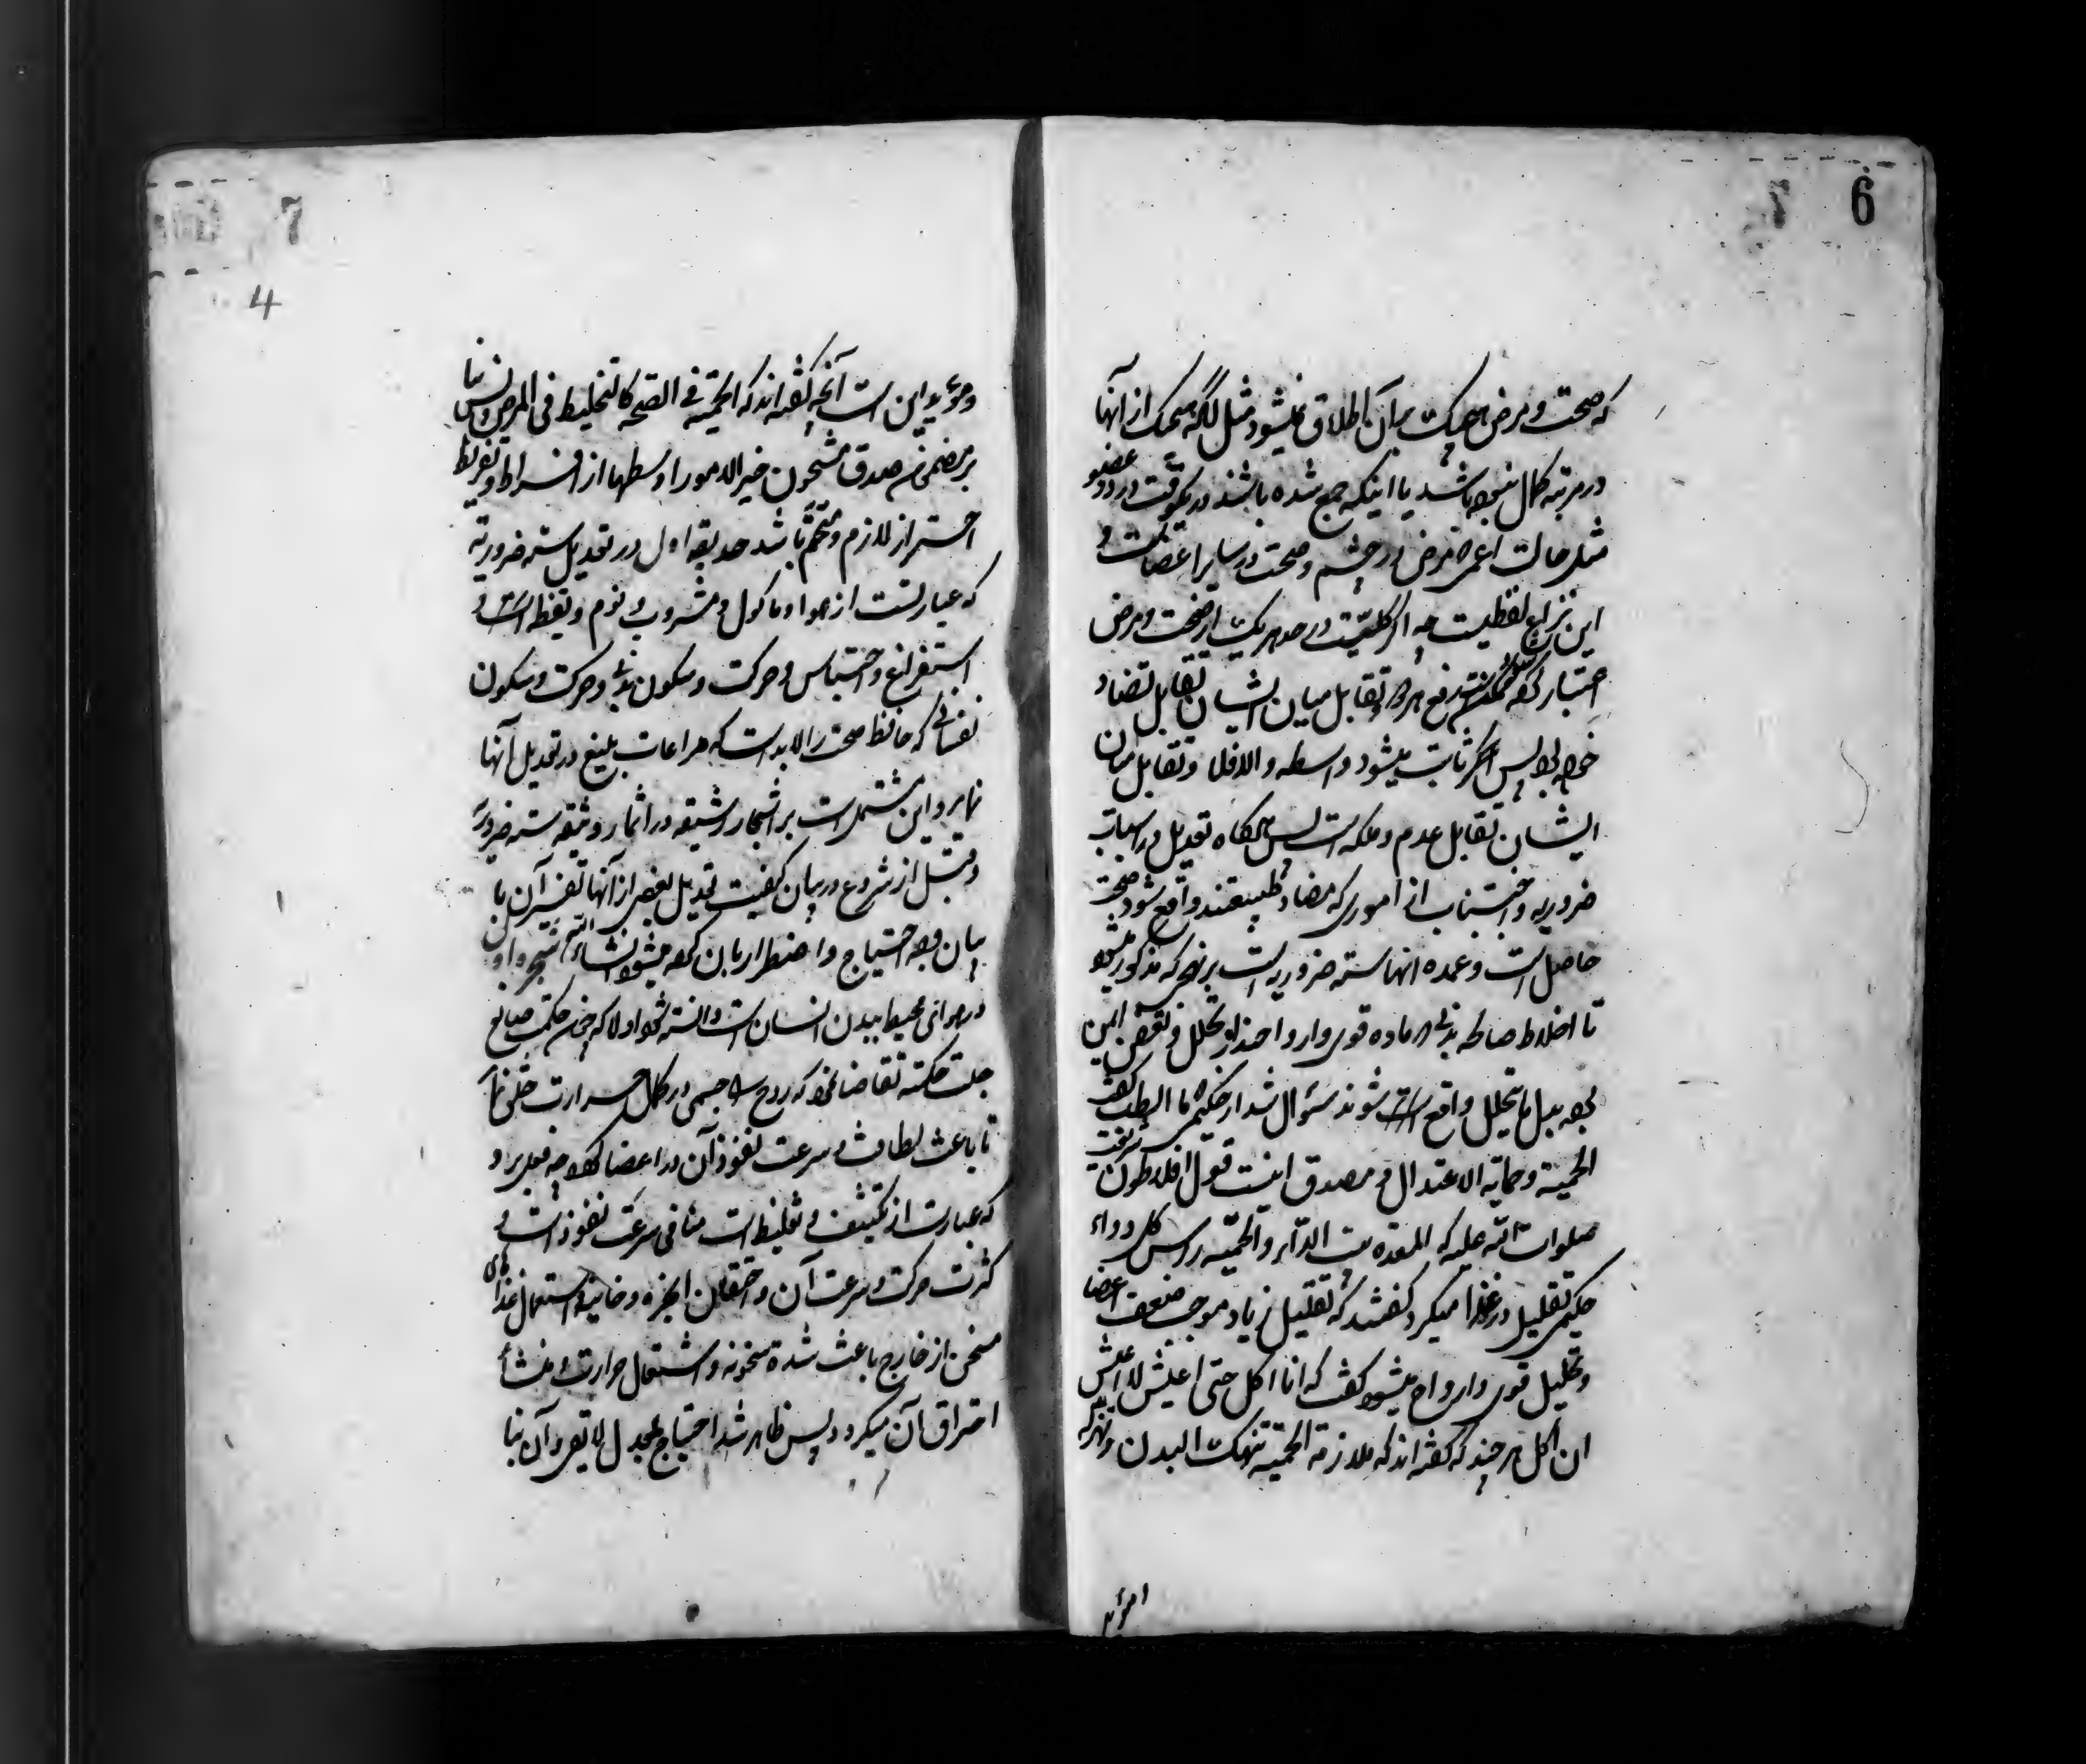 6
که صحت و مرض هیچیک بر آن اطلاق نمیشود مثل آنکه هیچیک از آنها
در مرتبه کمال نبوده باشد یا اینکه جمع شده باشند در یکوقت در دو عضو
مثل حالت اعمی مرض در چشم و صحت در سایر اعضا و
این نزاع لفظیست چه اگر کلیت در حد هر یک از صحت و مرض
اعتبار کنند رفع هر دو تقابل میان ایشان تقابل تضاد
خواهد بود پس اگر ثابت میشود واسطه والا فلا و تقابل میان
ایشان تقابل عدم و ملکه است پس هرگاه تعدیل در اسباب
ضروریه و اجتناب از اموری که مضاد طبیعتند واقع شود صحت
حاصل است و عمده آنها سته ضروریه است بر نهجی که مذکور میشود
تا اخلاط صالحه بدنی ماده قوی و ارواحند از تحلل و نقص ایمن
بوده بدل ما یتحلل واقع شوند سؤال شد از حکیمی ما الطب گفت
الحمیة و حمایة الاعتدال و مصدق اینست قول افلاطون
صلوات الله علیه که المعده بیت الداء والحمیه رأس کل دواء
حکیمی تقلیل در غذا میکرد گفتند که تقلیل زیاد موجب ضعف اعضا
و تحلیل قوی و ارواح میشود گفت که انا اکل حتی اعیش لا اعیش
ان اکل هر چند که گفته اند که ملازمة الحمیة تنهک البدن و تهزله
7
4
و مؤید این است آنچه گفته اند که الحمیة فی الصحة کالتخلیط فی المرض
بر مضمون صدق مشحون خیر الامور اوسطها از افراط و تفریط
احتراز لازم و متحتم باشد حدیقه اول در تعدیل سته ضروریه
که عبارتست از هوا و ماکول و مشروب و نوم و یقظه و
استفراغ و احتباس و حرکت و سکون بدنی و حرکت و سکون
نفسانی که حافظ صحت را لابد است که مراعات بلیغ در تعدیل آنها
نماید و این مشتمل است بر اشجار رشیقه در اثمار وثیقه سته ضروریه
و قبل از شروع در بیان کیفیت تعدیل بعضی از آنها تفسیر آن با
بیان وجه احتیاج و اضطرار بآن کرده میشود انشاء الله شجره اولی
در هوائی محیط ببدن انسان است دانسته شود اولا که چون حکمت صانع
جلت حکمته تقاضا نمود که روح را جسمی در کمال حرارت خلق نماید
تا باعث لطافت و سرعت نفوذ آن در اعضا گردد چه تبرید
که عبارت از تکثیف و تغلیظ است منافی سرعت نفوذ است و
کثرت حرکت و سرعت آن و احتقان ابخره دخانیه و استعمال غذاهای
مسخن از خارج باعث شدة سخونه و اشتعال حرارت و منشأ
احتراق آن میگردد پس ظاهر شد احتیاج بمعدل لایقی و آن